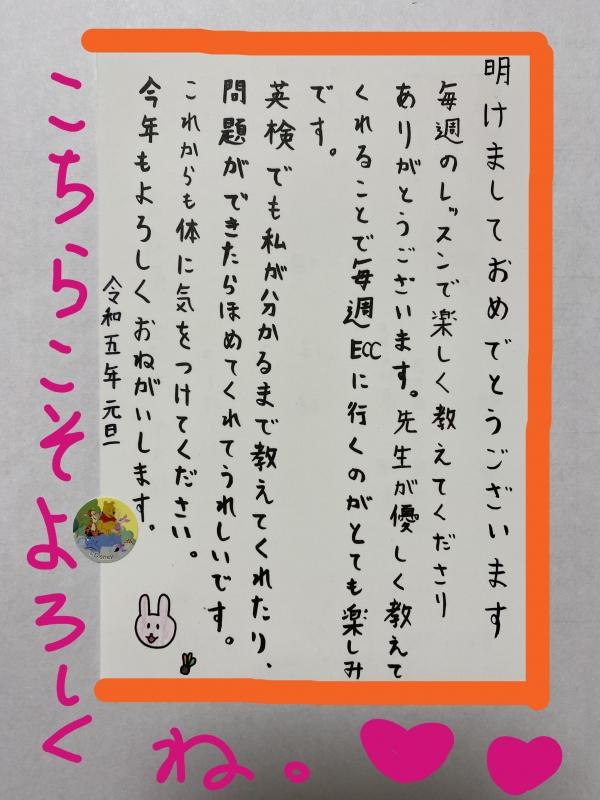 明けましておめでとうございます
毎週のレッスンで楽しく教えてくださり
ありがとうございます。先生が優しく教えて
くれることで毎週ECCに行くのがとても楽しみ
です。
英検でも私が分かるまで教えてくれたり、
問題ができたらほめてくれてうれしいです。
これからも体に気をつけてください。
今年もよろしくおねがいします。
令和五年 元旦
こちらこそよろしく
ね。
Disney